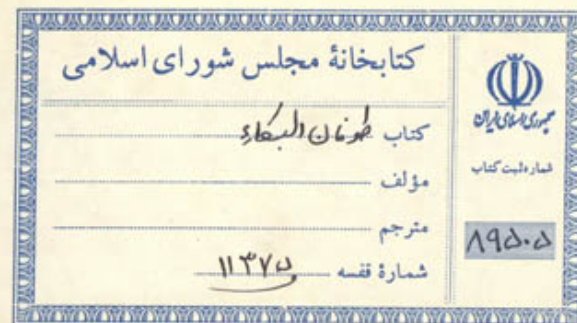 کتابخانهٔ مجلس شورای اسلامی
کتاب طوفان البکاء
مؤلف
مترجم
شمارهٔ قفسه ۱۱۳۷۵
جمهوری اسلامی ایران
شماره ثبت کتاب
۸۹۵۰۵